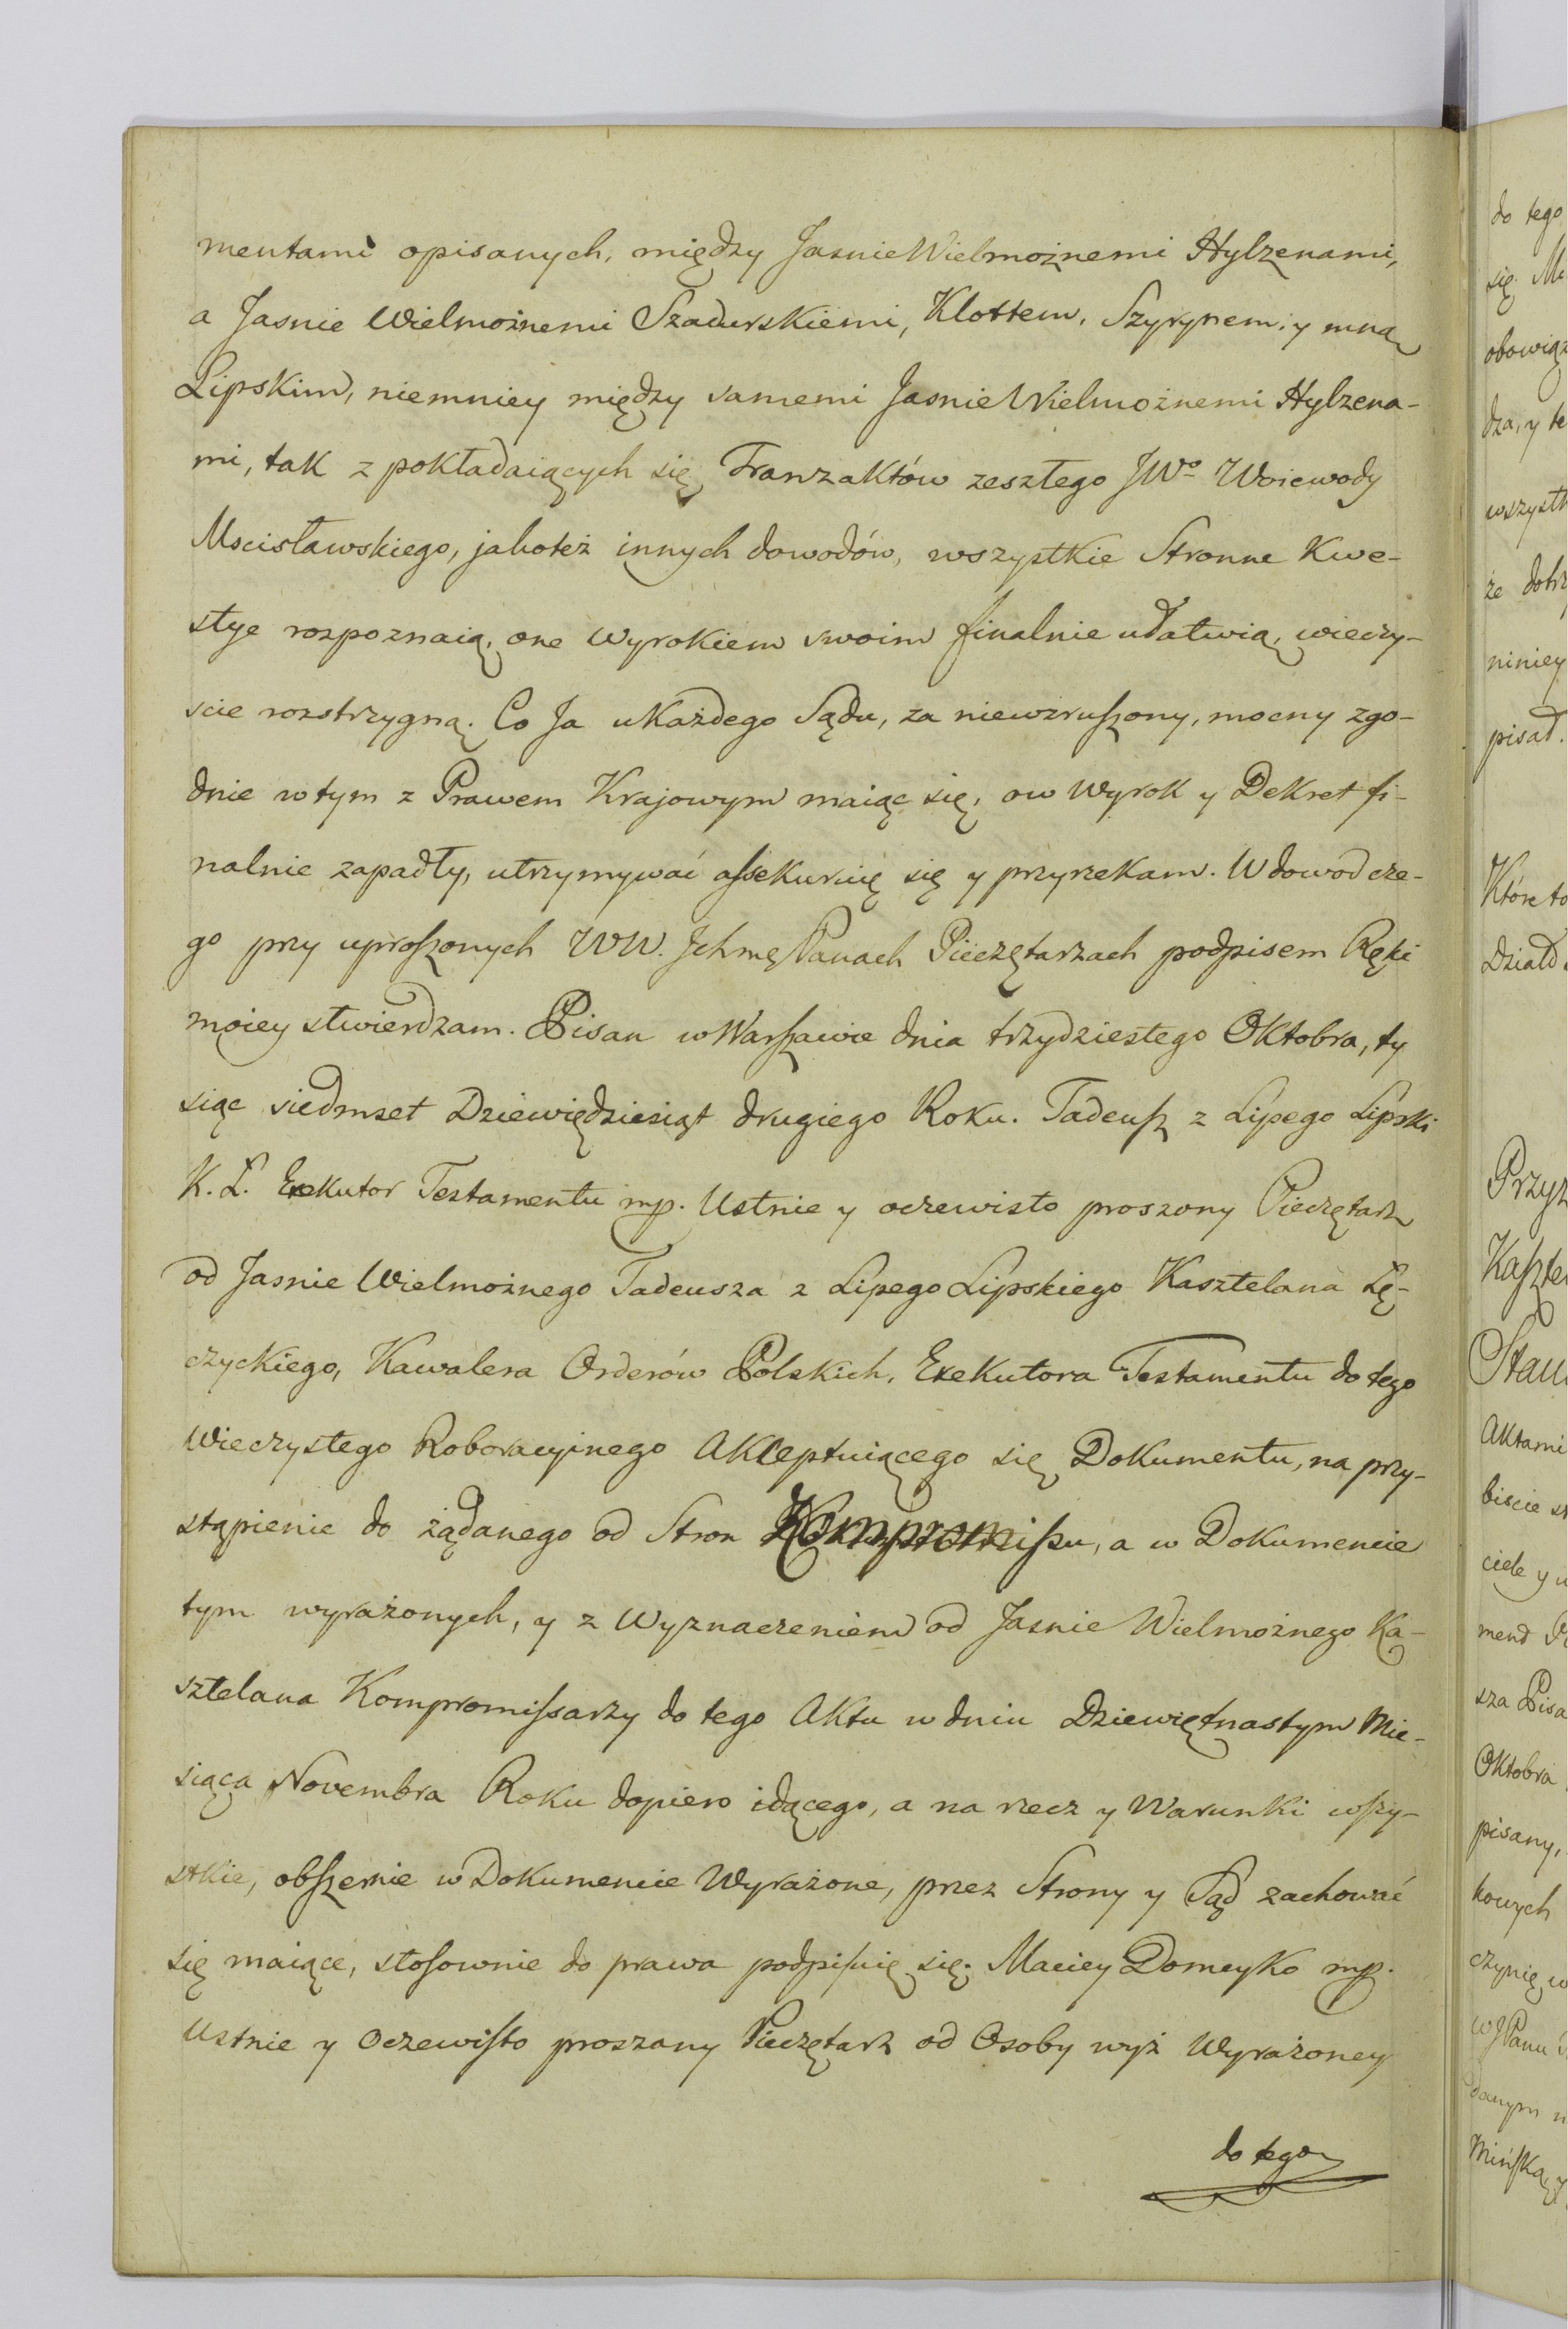 mentami opisanych, między JasnieWielmożnemi Hylzenami,
a Jasnie Wielmożnemi Szadurskiemi, Klottem, Szyrynem, y mną
Lipskim, niemniey między samemi JasnieWielmożnemi Hylzena-
mi, tak z pokładaiących się Tranzaktów zeszłego JWo Woiewody
Mscisławskiego, jakoteż innych dowodów, wszystkie Stronne Kwe-
stye rozpoznaią, one Wyrokiem swoim finalnie ułatwią, wieczy-
scie rozstrzygną. Co Ja u Każdego Sądu, za niewzruszony, mocny zgo-
dnie w tym z Prawem Krajowym maiąc się, ow Wyrok y Dekret fi-
nalnie zapadły, utrzymywać assekuruię się y przyrzekam. W dowod cze-
go przy uproszonych WW. Jchmę Panach Pieczętarzach podpisem Ręki
moiey stwierdzam. Pisan w Warszawie dnia trzydziestego Oktobra, ty
siąc siedmset Dziewiędziesiąt drugiego Roku. Tadeusz z Lipego Lipski
K. Ł. Exekutor Testamentu mp. Ustnie y oczewisto proszony Pieczętarz
od Jasnie Wielmożnego Tadeusza z Lipego Lipskiego Kasztelana Łę-
czyckiego, Kawalera Orderów Polskich, Exekutora Testamentu do tego
Wieczystego Roboracyinego Akceptuiącego się Dokumentu, na przy-
stąpienie do żądanego od Stron Kompromissu, a w Dokumencie
tym wyrażonych, y z Wyznaczeniem od Jasnie Wielmożnego Ka-
sztelana Kompromissarzy do tego Aktu w dniu Dziewiętnastym Mie-
siąca Novembra Roku dopiero idącego, a na rzecz y Warunki wszy-
stkie, obszernie w Dokumencie Wyrażone, przez Strony y Sąd zachować
się maiące, stosownie do prawa podpisuię się. Maciey Domeyko mp.
Ustnie y Oczewisto proszany Pieczętarz od Osoby wyż Wyrażoney
do tego
do tego
się. 
obowiąz
dza, y te
wszystk
że dotrz
niniey
pisał.
Które to
Dział
Przyz
Kaszte
Stan
Aktami
biscie st
ciele y
mend
sza Pisa
Oktobra
pisany,
kowych
czynię w
Panu
danym
Mińską, y